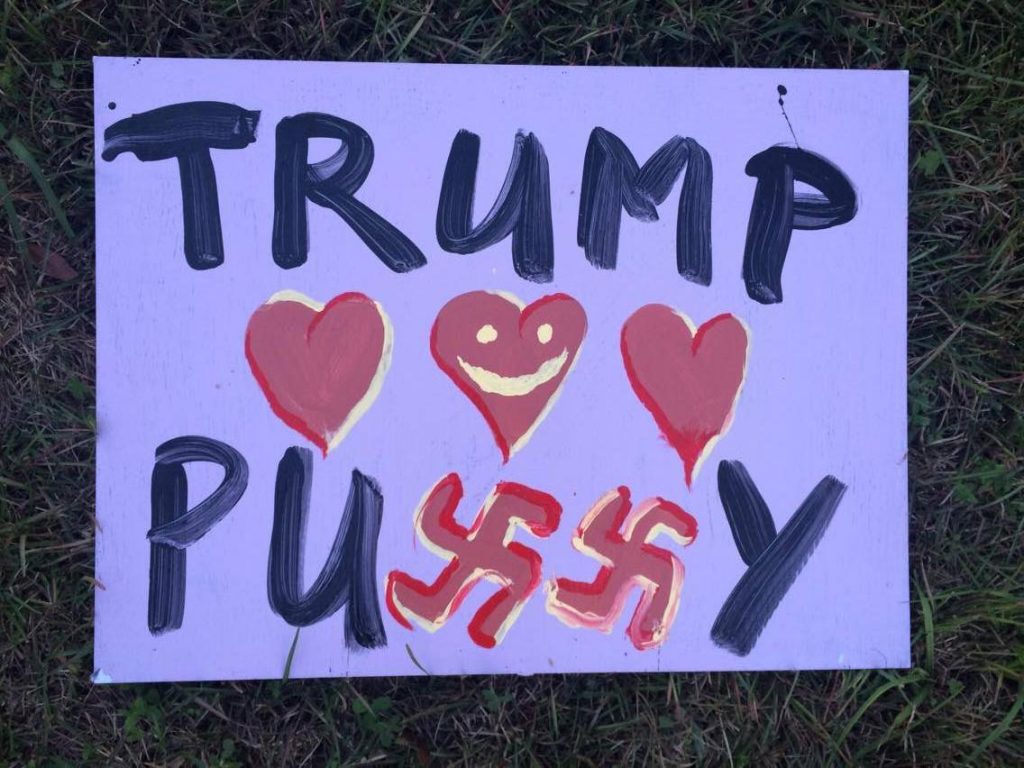 TRUMP
PU卐卐Y